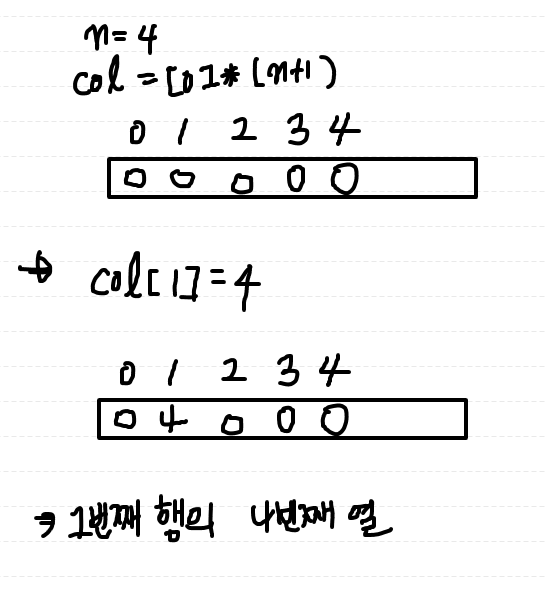 n=4
col = [0]*(n+1)
0 1 2 3 4
0 0 0 0 0
→ col[1]=4
0 1 2 3 4
0 4 0 0 0
→ 1번째 행의 4번째 열